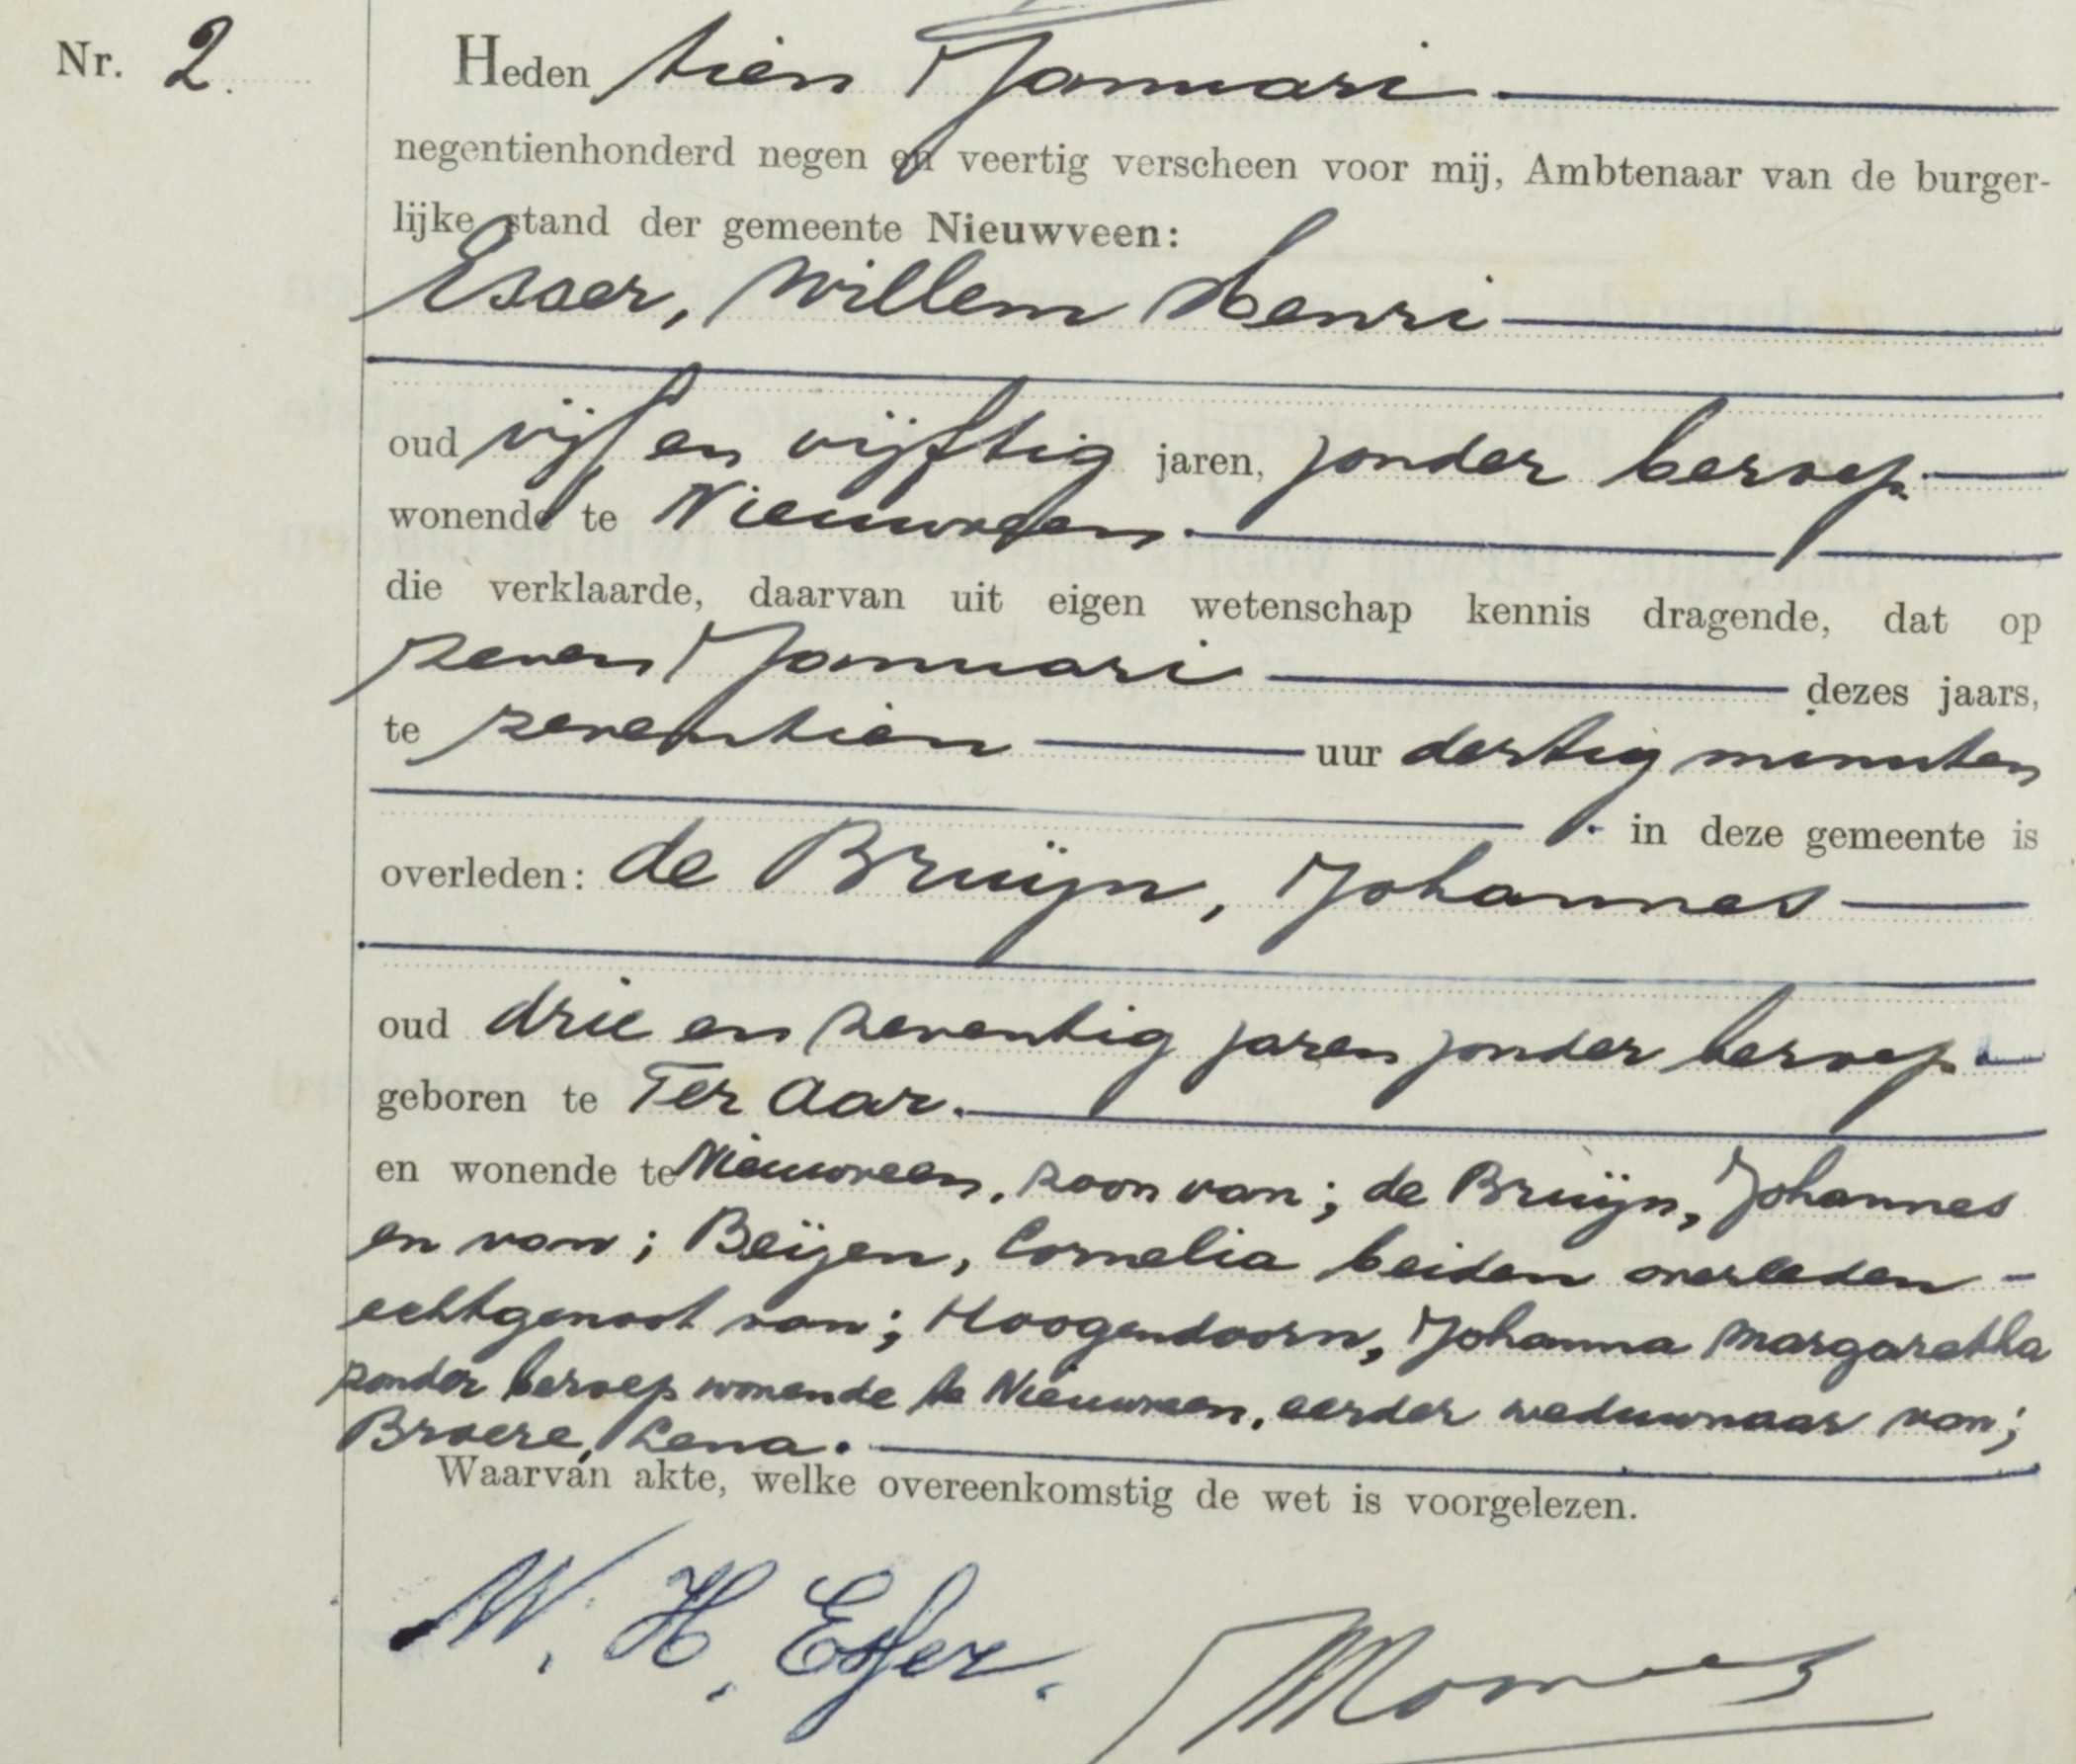 Nr. 2.
Heden tien Januari
negentienhonderd negen en veertig verscheen voor mij, Ambtenaar van de burger-
lijke stand der gemeente Nieuwveen:
Esser, Willem Henri
oud vijf en vijftig jaren, zonder beroep
wonende te Nieuwveen.
die verklaarde, daarvan uit eigen wetenschap kennis dragende, dat op
zeven Januari dezes jaars,
te zeventien uur dertig minuten
in deze gemeente is
overleden: de Bruijn, Johannes
oud drie en zeventig jaren zonder beroep.
geboren te Ter Aar.
en wonende te Nieuwveen, zoon van; de Bruijn, Johannes
en van; Beijen, Cornelia beiden overleden -
echtgenoot van; Hoogendoorn, Johanna Margaretha
zonder beroep wonende te Nieuwveen, eerder weduwnaar van;
Broere, Lena.
Waarván akte, welke overeenkomstig de wet is voorgelezen.
W. H. Esser.